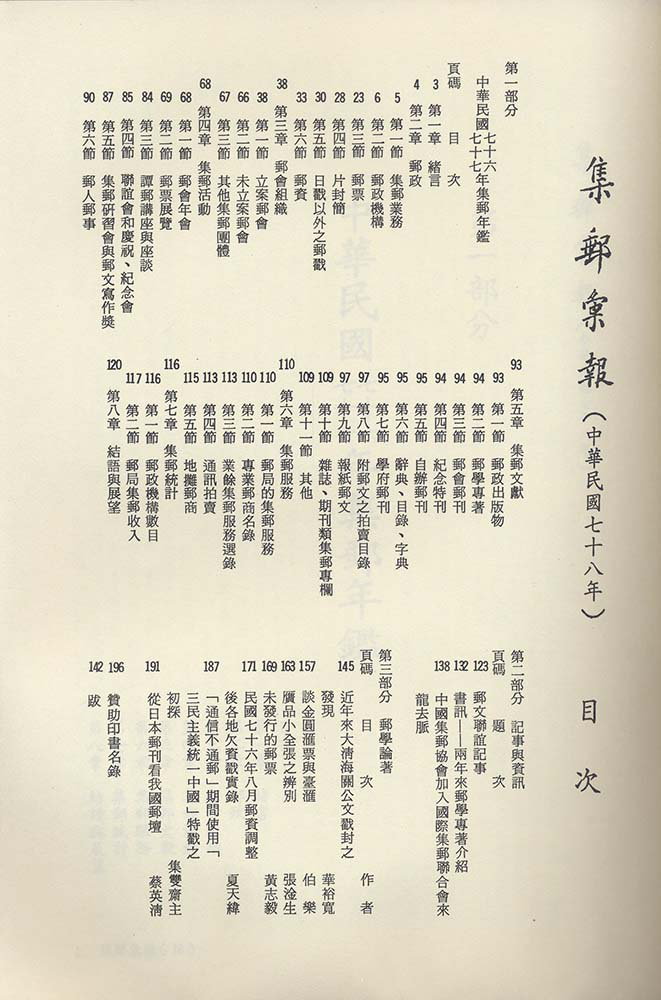 集郵彙報(中華民國七十八年) 目次
第一部分
中華民國七十六七十七年集郵年鑑
頁碼 目次
3 第一章 緒言
4 第二章 郵政
5 第一節 集郵業務
6 第二節 郵政機構
23 第三節 郵票
28 第四節 片封簡
30 第五節 日戳以外之郵戳
33 第六節 郵資
38 第三章 郵會組織
38 第一節 立案郵會
66 第二節 未立案郵會
67 第三節 其他集郵團體
68 第四章 集郵活動
68 第一節 郵會年會
69 第二節 郵票展覽
84 第三節 譚郵講座與座談
85 第四節 聯誼會和慶祝、紀念會
87 第五節 集郵研習會與郵文寫作獎
90 第六節 郵人郵事
93 第五章 集郵文獻
93 第一節 郵政出版物
94 第二節 郵學專著
94 第三節 郵會郵刊
94 第四節 紀念特刊
95 第五節 自辦郵刊
95 第六節 辭典、目錄、字典
95 第七節 學府郵刊
97 第八節 附郵文之拍賣目錄
97 第九節 報紙郵文
109 第十節 雜誌、期刊類集郵專欄
109 第十一節 其他
110 第六章 集郵服務
110 第一節 郵局的集郵服務
110 第二節 專業郵商名錄
113 第三節 業餘集郵服務選錄
113 第四節 通訊拍賣
115 第五節 地攤郵商
116 第七章 集郵統計
116 第一節 郵政機構數目
117 第二節 郵局集郵收入
120 第八章 結語與展望
第二部分 記事與資訊
頁碼 題次
123 郵文聯誼記事
132 書訊——兩年來郵學專著介紹
138 中國集郵協會加入國際集郵聯合會來
龍去脈
第三部分 郵學論著
頁碼 目次 作者
145 近年來大清海關公文戳封之
發現 華裕寬
157 談金圓滙票與臺滙 伯樂
163 贋品小全張之辨別 張淦生
169 未發行的郵票 黃志毅
171 民國七十六年八月郵資調整
後各地欠資戳實錄 夏天緯
187 「通信不通郵」期間使用「
三民主義統一中國」特戳之
初探 集雙齋主
191 從日本郵刊看我國郵壇 蔡英清
196 贊助印書名錄
142 跋